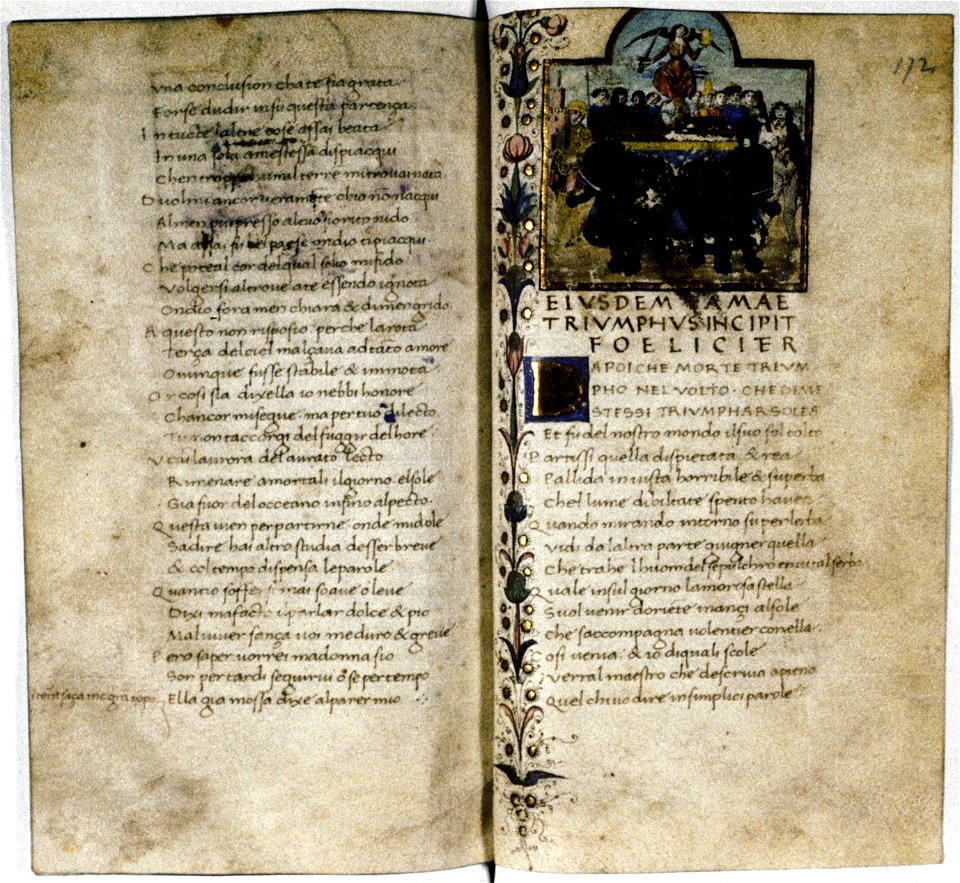 Una conclusion cha te sia grata
Forse dudir in su questa partenza
In tucte laltre cose assai beata
In una sola ame stessa dispiacqui
Che in troppo humil terre mi trovai nata
Duolmi ancor veramente chio non nacqui
Almen piu presso al tuo fiorito nido
Ma assai fu bel paese ondio ti piacqui
Che potea l cor del qual solo mi fido
Volgersi altrove a te essendo ignota
Ondio fora men chiara & di men grido
A questo non risposio perche la rota
Terça del ciel malçava ad tato amore
Ovunque fusse stabile & immota
Or cosi sia dixella io nebbi honore
Chancor mi segue ma per tuo dilecto
Tu non taccorgi del fuggir del hore
V
Rimenare a mortali il giorno el sole
Gia fuor del occeano infino al pecto
Questa vien per partirne onde mi dole
Sadire hai altro studia desser breve
& col tempo dispensa le parole
Quanto soffersi mai soave & leve
Dixi ma facto il parlar dolce & pio
Mal viver sança voi me duro & greve
Pero saper vorrei madonna sio
Son per tardi seguirvi o se per tempo
Ella gia mossa dixe al parer mio
172
EIUSDEM FAMAE
TRIUMPHUS INCIPIT
FOELICITER
DAPOI CHE MORTE TRIUM
PHO NEL VOLTO · CHE DI ME
STESSI TRIUMPHAR SOLEA
Et fu del nostro mondo il suo sol tolto
Partissi quella dispietata & rea
Pallida in vista horribile & superba
Chel lume di biltate spento havea
Quando mirando intorno su per lerba
Vidi da laltra parte giugner quella
Che trahe lhuom del sepulchro en vita l serba
Quale in sul giorno lamorosa stella
Suol venir doriete mançi al sole
Che saccompagna volentier con ella
Cosi venia & io di quali scole
Verra l maestro che descriva apieno
Quel chi vo dire in simplici parole